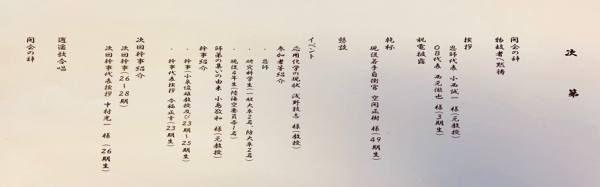 次　第
開会の辞
物故者へ黙祷
挨拶
恩師代表 小西誠一 様(元教授)
OB代表 西元徹也 様(3期生)
祝電披露
乾杯
現役若手自衛官 空閑正樹 様(49期生)
懇談
イベント
応用化学の現状 浅野敦志 様(教授)
参加者等紹介
・恩師
・研究科学生(一般大卒2名 防大卒2名)
・現役4年生(陸海空要員各1名)
師弟の集いの由来 小島敬和 様(元教授)
幹事紹介
・幹事(小泉俊雄教授及び23期~25期生)
・幹事代表挨拶
次回幹事紹介
次回幹事(26~28期)
次回幹事代表挨拶 中村光一 様(26期生)
逍遥歌合唱
閉会の辞